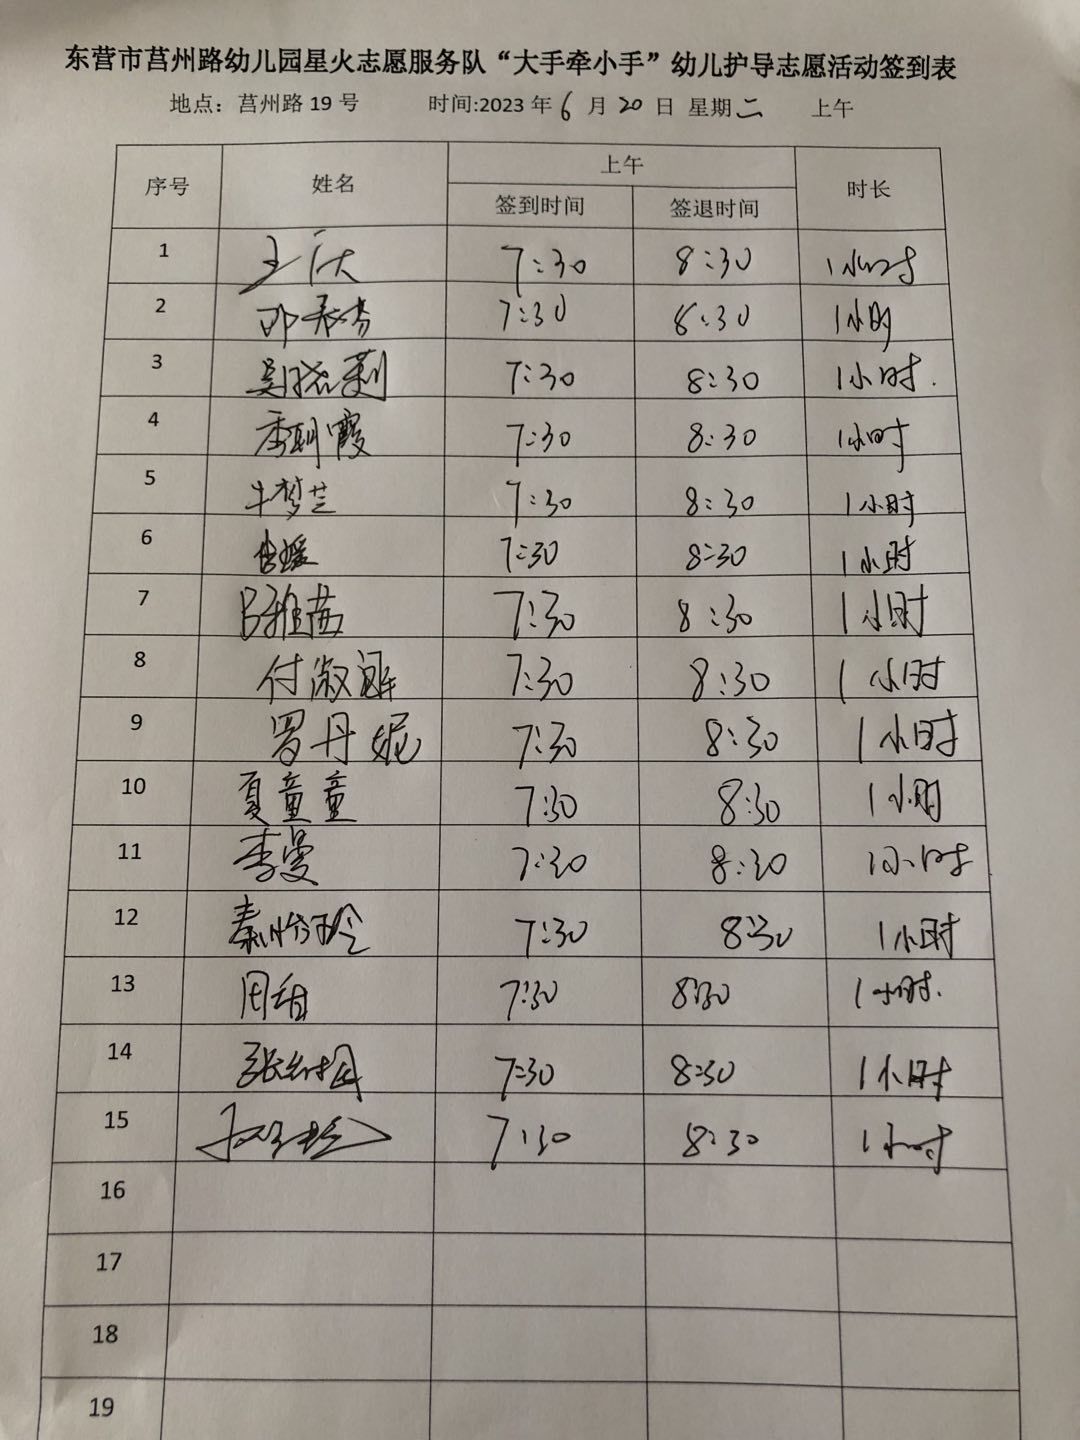 东营市莒州路幼儿园星火志愿服务队“大手牵小手”幼儿护导志愿活动签到表
地点：莒州路 19 号 时间:2023 年 6 月 20 日 星期二 上午
序号 姓名 上午 时长
签到时间 签退时间
1 7:30 8:30 1小时
2 7:30 8:30 1小时
3 7:30 8:30 1小时.
4 季明霞 7:30 8:30 1小时
5 牛梦兰 7:30 8:30 1小时
6 7:30 8:30 1小时
7 吕雅茹 7:30 8:30 1小时
8 付淑 7:30 8:30 1小时
9 罗丹妮 7:30 8:30 1小时
10 夏童童 7:30 8:30 1小时
11 李曼 7:30 8:30 1小时
12 7:30 8:30 1小时
13 7:30 8:30 1小时.
14 7:30 8:30 1小时
15 7:30 8:30 1小时
16
17
18
19